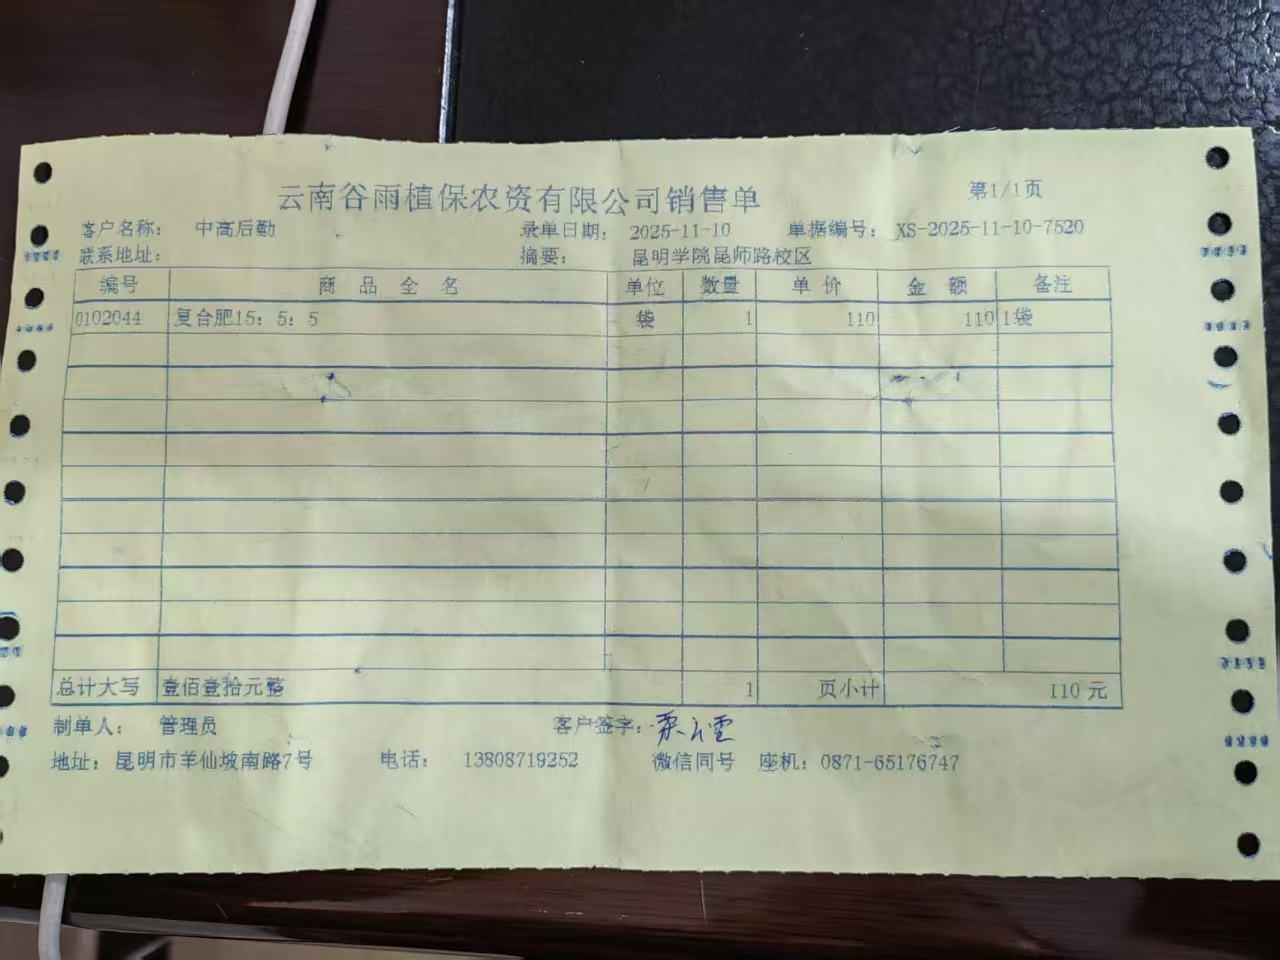 云南谷雨植保农资有限公司销售单 第1/1页
客户名称: 中高后勤 录单日期: 2025-11-10 单据编号: XS-2025-11-10-7520
联系地址: 摘要: 昆明学院昆师路校区
编号 商 品 全 名 单位 数量 单 价 金 额 备注
0102044 复合肥15: 5: 5 袋 1 110 110 1袋
总计大写 壹佰壹拾元整 1 页小计 110 元
制单人: 管理员 客户签字:
地址: 昆明市羊仙坡南路7号 电话: 13808719252 微信同号 座机: 0871-65176747